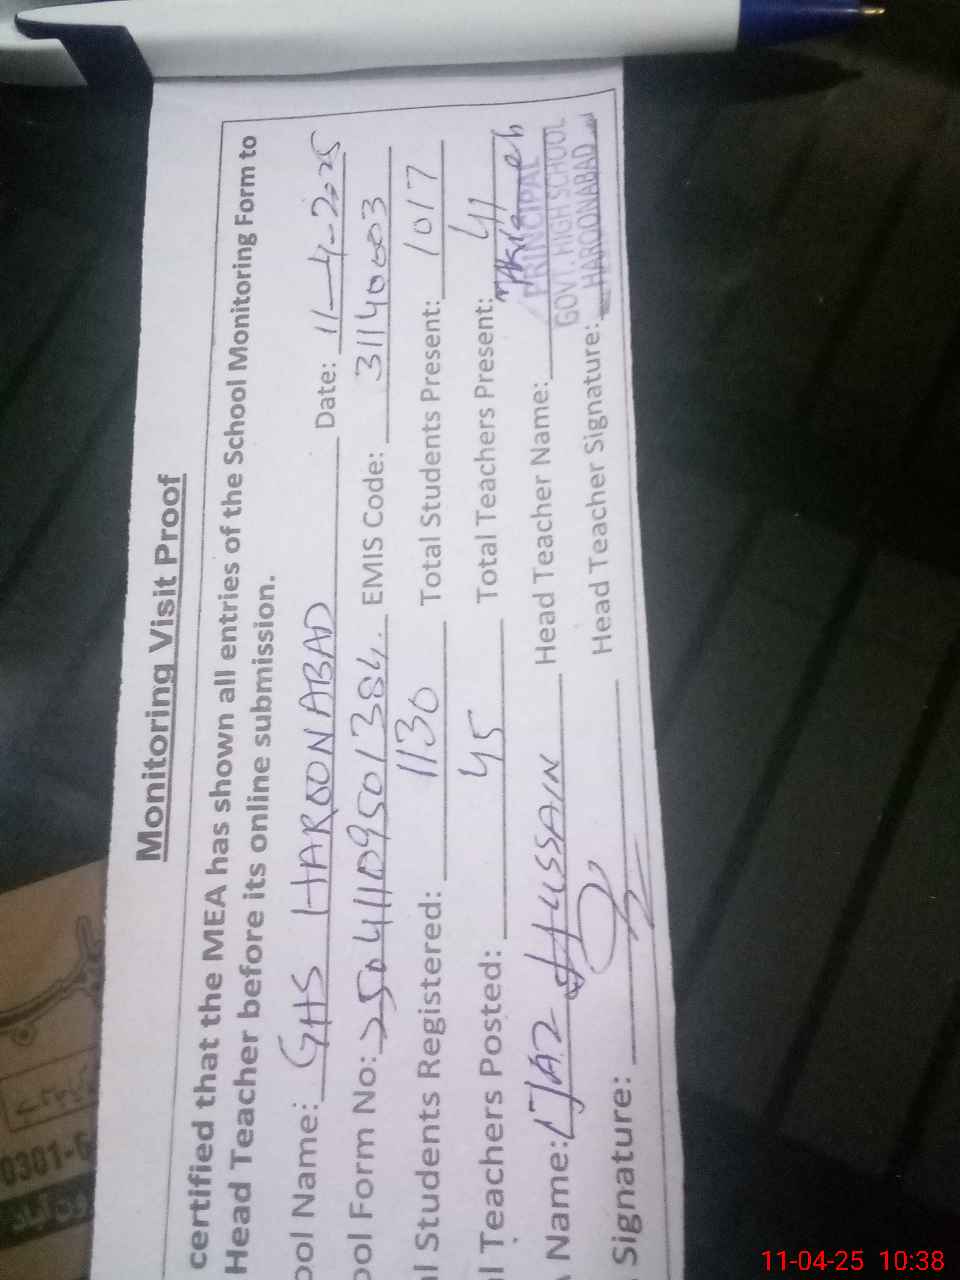 Monitoring Visit Proof
certified that the MEA has shown all entries of the School Monitoring Form to
Head Teacher before its online submission.
ool Name: GHS HAROONABAD Date: 11-4-2025
ool Form No: 25041109501384. EMIS Code: 31140003
al Students Registered: 1130 Total Students Present: 1017
al Teachers Posted: 45 Total Teachers Present: 41
Name: IJAZ HUSSAIN Head Teacher Name:
PRINCIPAL
GOVT. HIGH SCHOOL
HAROONABAD
Signature: Head Teacher Signature:
0301-6
11-04-25 10:38